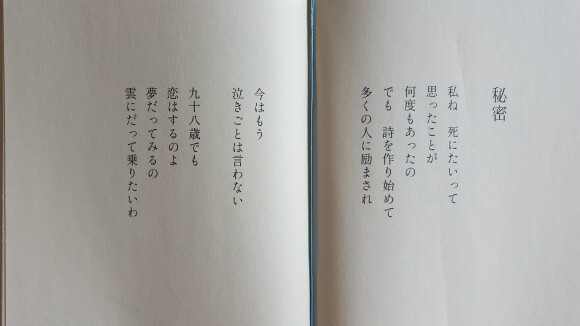 秘密
私ね 死にたいって
思ったことが
何度もあったの
でも 詩を作り始めて
多くの人に励まされ
今はもう
泣きごとは言わない
九十八歳でも
恋はするのよ
夢だってみるの
雲にだって乗りたいわ